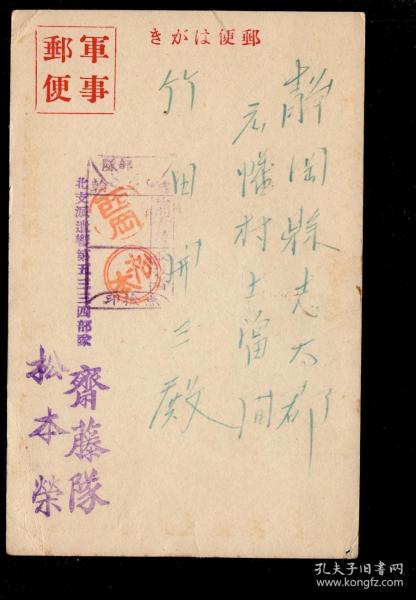 郵便はがき
軍事
郵便
静岡縣志太郡
広幡村上當間
竹田開三殿
北支派遣響第五三三四部隊
齋藤隊
松本榮
孔夫子旧书网
www.kongfz.com